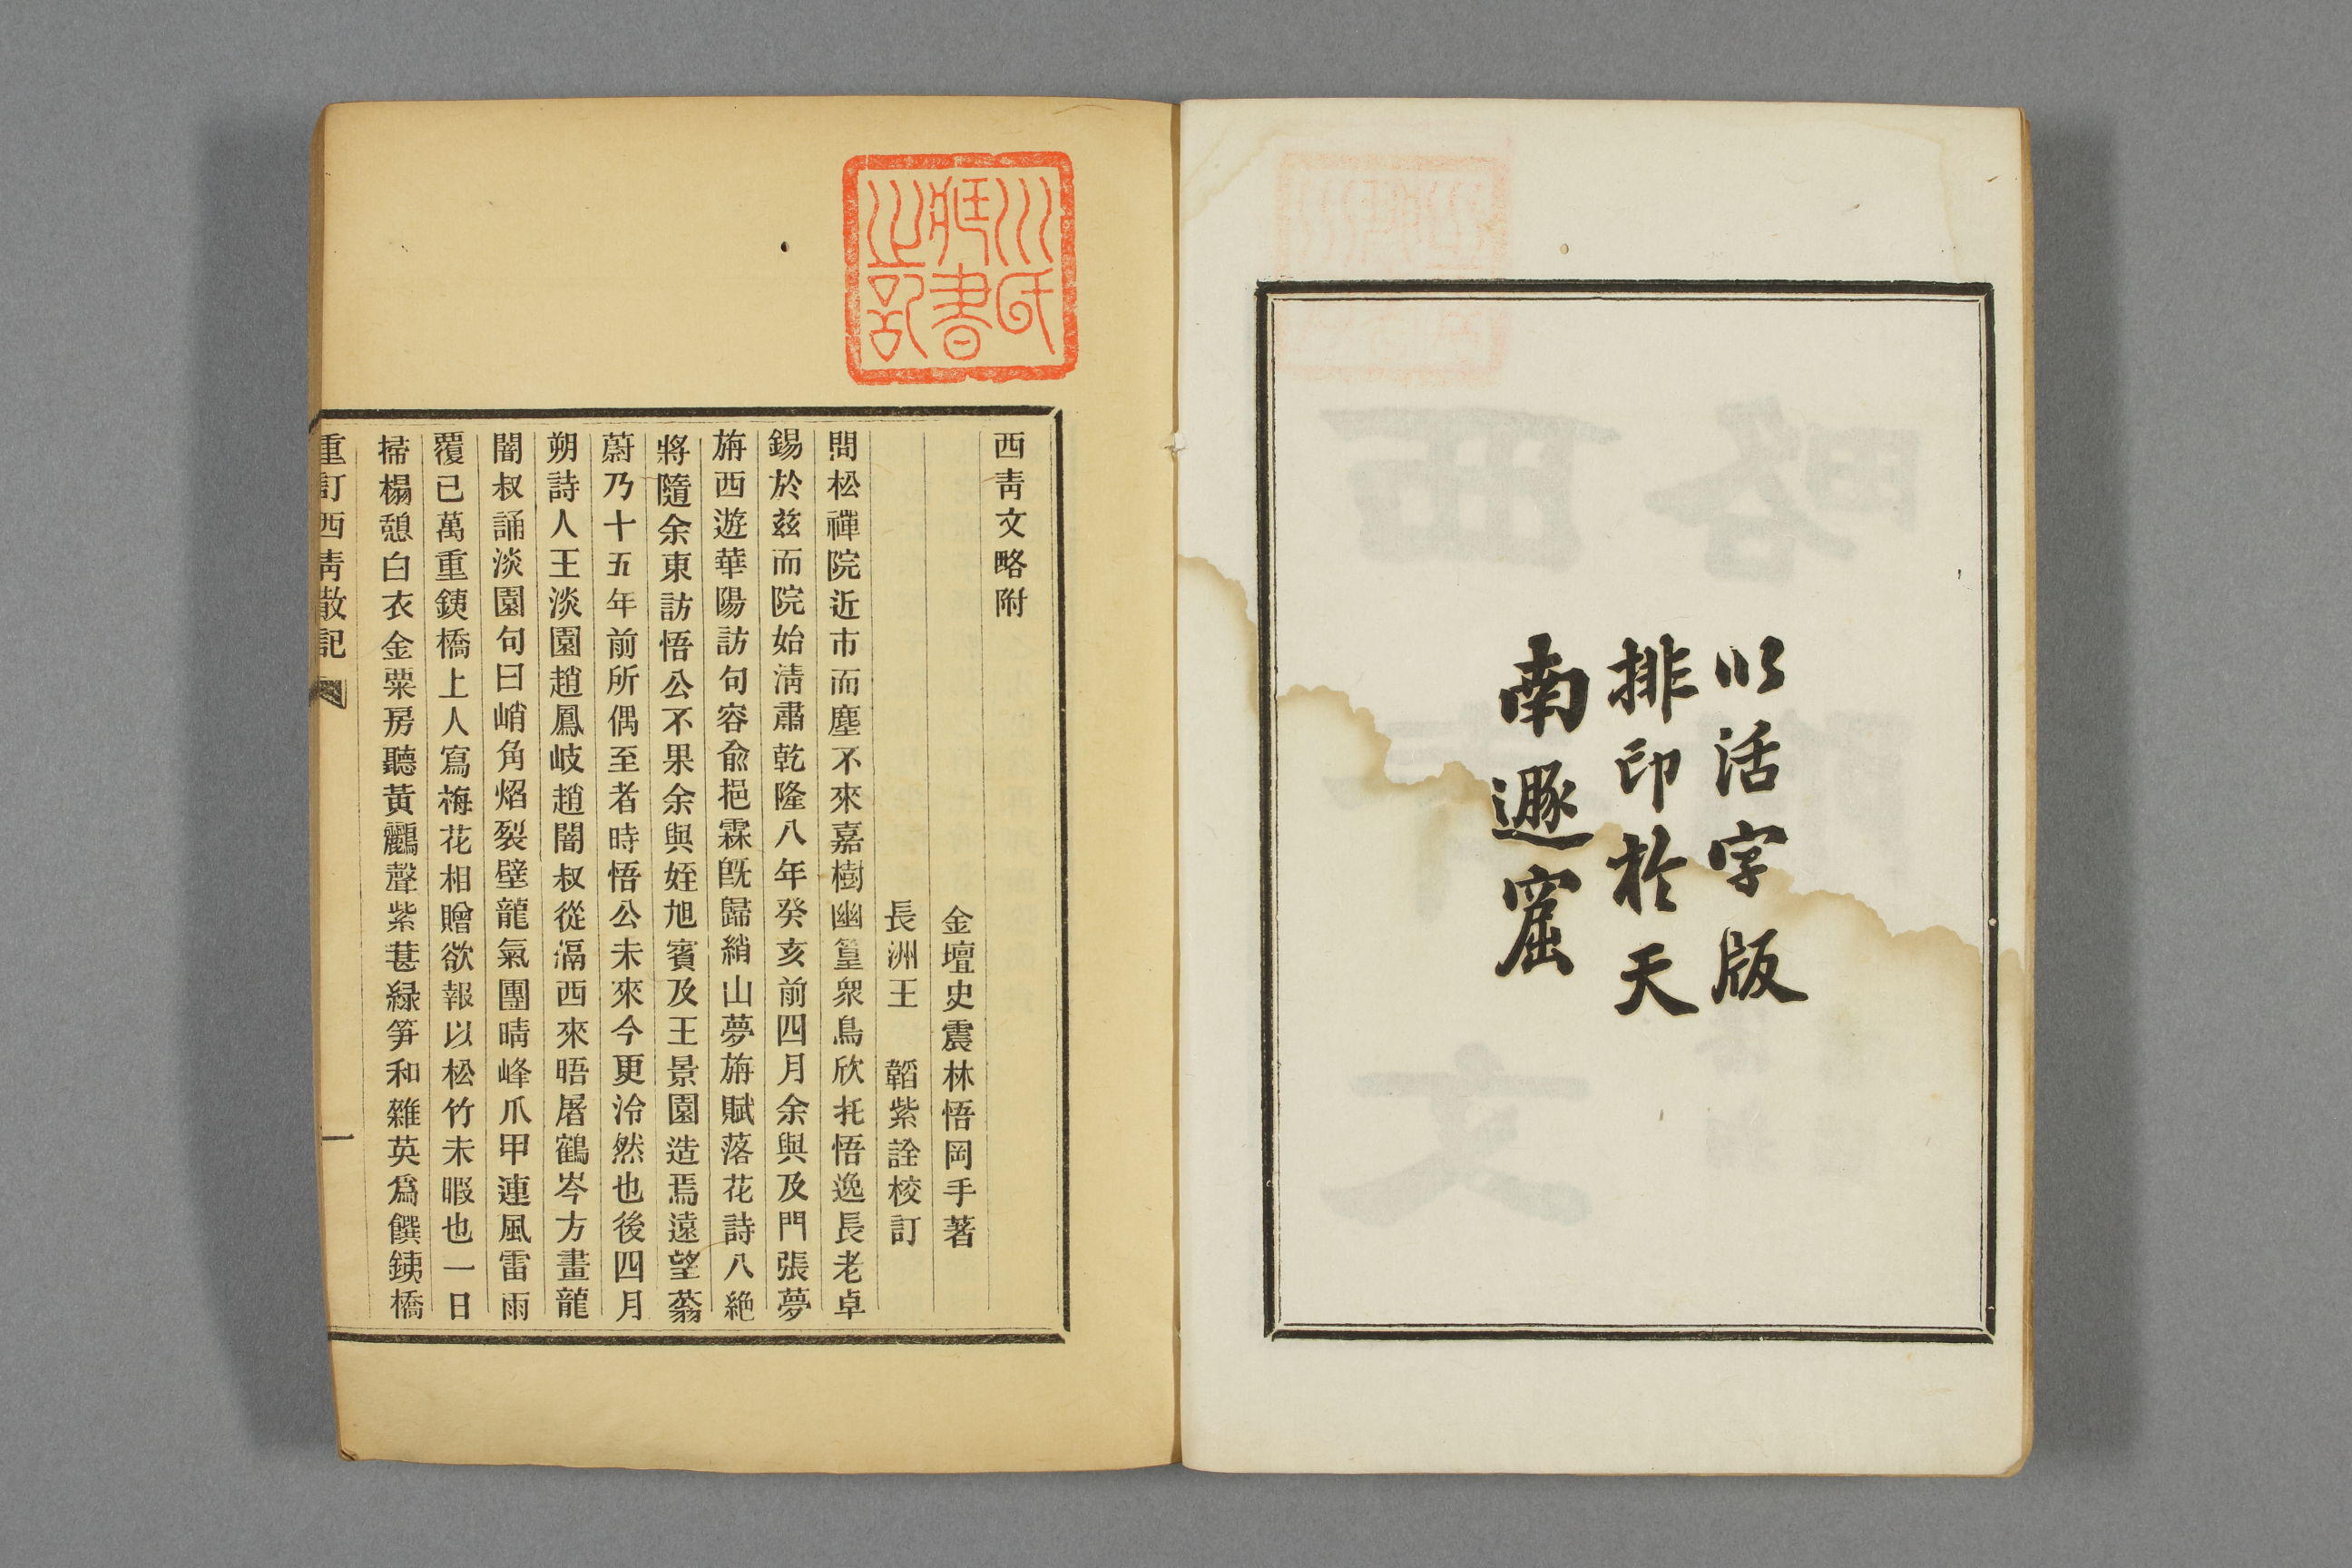 以活字版
排印於天
南遯窟
西青文略附
金壇史震林悟岡手著
長洲王韜紫詮校訂
間松禪院近市而塵不來嘉樹幽篁衆鳥欣托悟逸長老卓
錫於兹而院始清肅乾隆八年癸亥前四月余與及門張夢
旃西遊華陽訪句容俞挹霖旣歸綃山夢旃賦落花詩八絶
將隨余東訪悟公不果余與姪旭賓及王景園造焉遠望蓊
蔚乃十五年前所偶至者時悟公未來今更泠然也後四月
朔詩人王淡園趙鳳岐趙闇叔從滆西來晤屠鶴岑方畫龍
闇叔誦淡園句曰峭角焰裂壁龍氣團晴峰爪甲連風雷雨
覆已萬重銕橋上人寫梅花相贈欲報以松竹未暇也一日
掃榻憩白衣金粟房聽黃鸝聲紫葚緑笋和雜英爲饌銕橋
重訂西青散記
一
川氏
藏書
之記